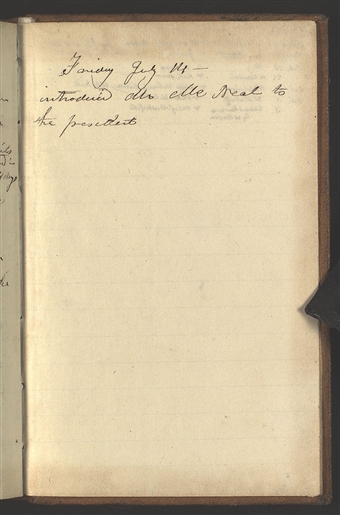 Friday July 14 —
introduced Mr McNeal to
the president